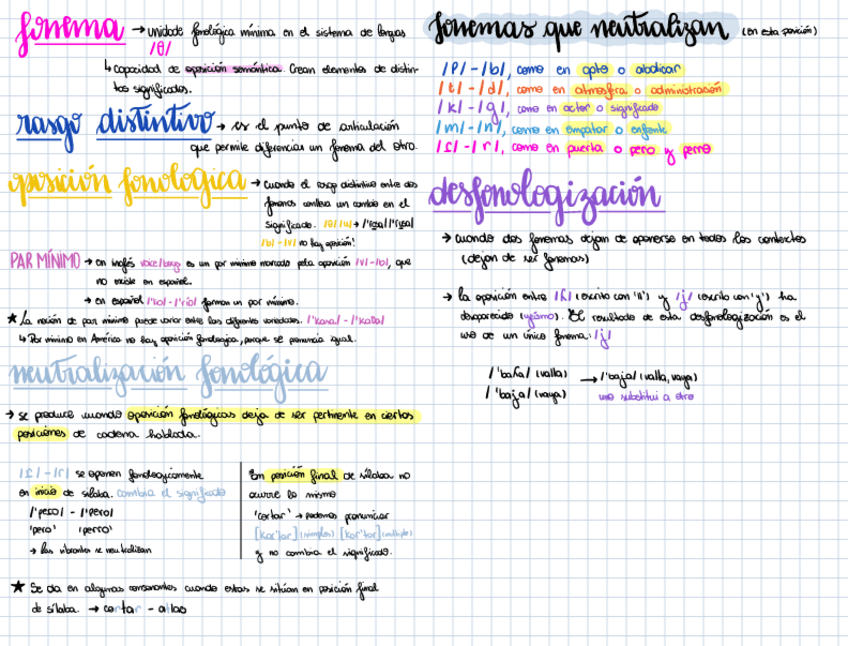 fonema → unidade fonológica mínima en el sistema de lenguas
/θ/
↳ capacidad de oposición semántica. Crean elementos de distin-
tos significados.
rasgo distintivo → es el punto de articulación
que permite diferencias un fonema del otro.
oposición fonológica → cuando el rasgo distintivo entre dos
fonemas conlleva un cambio en el
significado.
/b/ - /v/ no hay oposición!
PAR MÍNIMO → en inglés es un par mínimo marcado pela oposición /v/-/b/, que
no existe en español.
→ en español forman un par mínimo.
★ La noción de par mínimo puede variar entre las diferentes variedades.
↳ Par mínimo en América no hay oposición fonológica, porque se pronuncia igual.
neutralización fonológica
→ se produce cuando oposición fonológicas deja de ser pertinente en ciertas
posiciones de cadena hablada.
/ɾ/ - /r/ se oponen fonologicamente
en inicio de sílaba. cambia el significado
/'peɾo/ - /'pero/
'pero' 'perro'
→ las vibrantes se neutralizan
En posición final de sílaba no
ocurre lo mismo
'cortar' → podemos pronunciar
[koɾ'taɾ] (simples) [kor'tor] (múltiple)
y no cambia el significado.
★ Se da en algunas consonantes cuando estas se sitúan en posición final
de sílaba. → cortar - atlas
fonemas que neutralizan (en esta posición)
/p/ - /b/, como en apto o abdicar
/t/ - /d/, como en atmosfera o administración
/k/ - /g/, como en actor o significado
/m/ - /n/, como en empatar o enfrente
/ɾ/ - /r/, como en puerta o pero y perro
desfonologización
→ cuando dos fonemas dejan de oponerse en todos los contextos
(dejan de ser fonemas)
→ la oposición entre /ʎ/ (escrito con 'll') y /ʝ/ (escrito con 'y') ha
desaparecido (yeísmo). El resultado de esta desfonologización es el
uso de un único fonema: /ʝ/
/'baʎa/ (valla) → /'baʝa/ (valla, vaya)
/'baʝa/ (vaya) uno substitui a otro